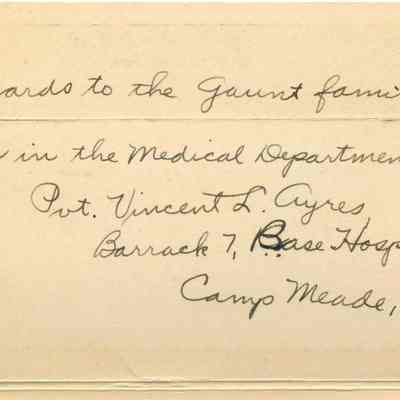 ards to the Gaunt fami
in the Medical Departmen
Pvt. Vincent L. Ayres,
Barrack 7, Base Hosp
Camp Meade,